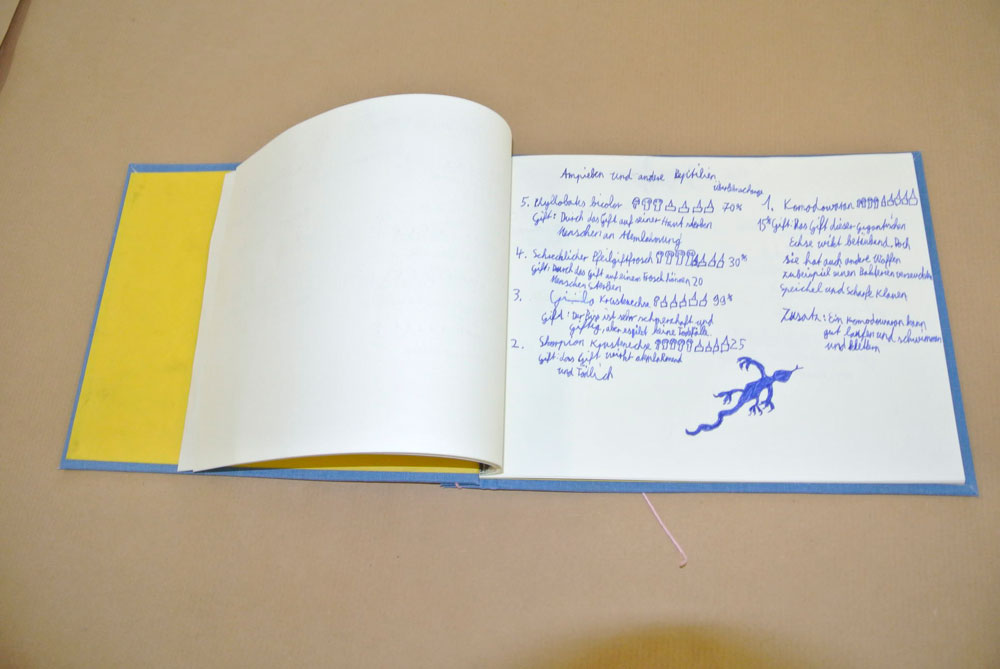 Ampieben und andere Reptilien
5. Phyllobates bicolor 70%
Gift: Durch das Gift auf seiner Haut sterben
Menschen an Atemlämung
4. Schrecklicher Pfeilgiftfrosch 30%
Gift: Durch das Gift auf einem Frosch können 20
Menschen sterben
3. Krustenechse 99%
Gift: Der Biss ist sehr schmerzhaft und
giftig, aber es gibt keine Todfälle
2. Skorpion Krustenechse 25
Gift: das Gift wirkt
und Tödlich
1. Komodowaran
15% Gift: Das Gift dieser gigantischen
Echse wirkt betäubend. Doch
sie hat auch andere Waffen
zubeispiel einen Bakterien
Speichel und Scharfe Klauen
Zusatz: Ein Komodowaran kann
gut laufen und schwimmen
und klettern